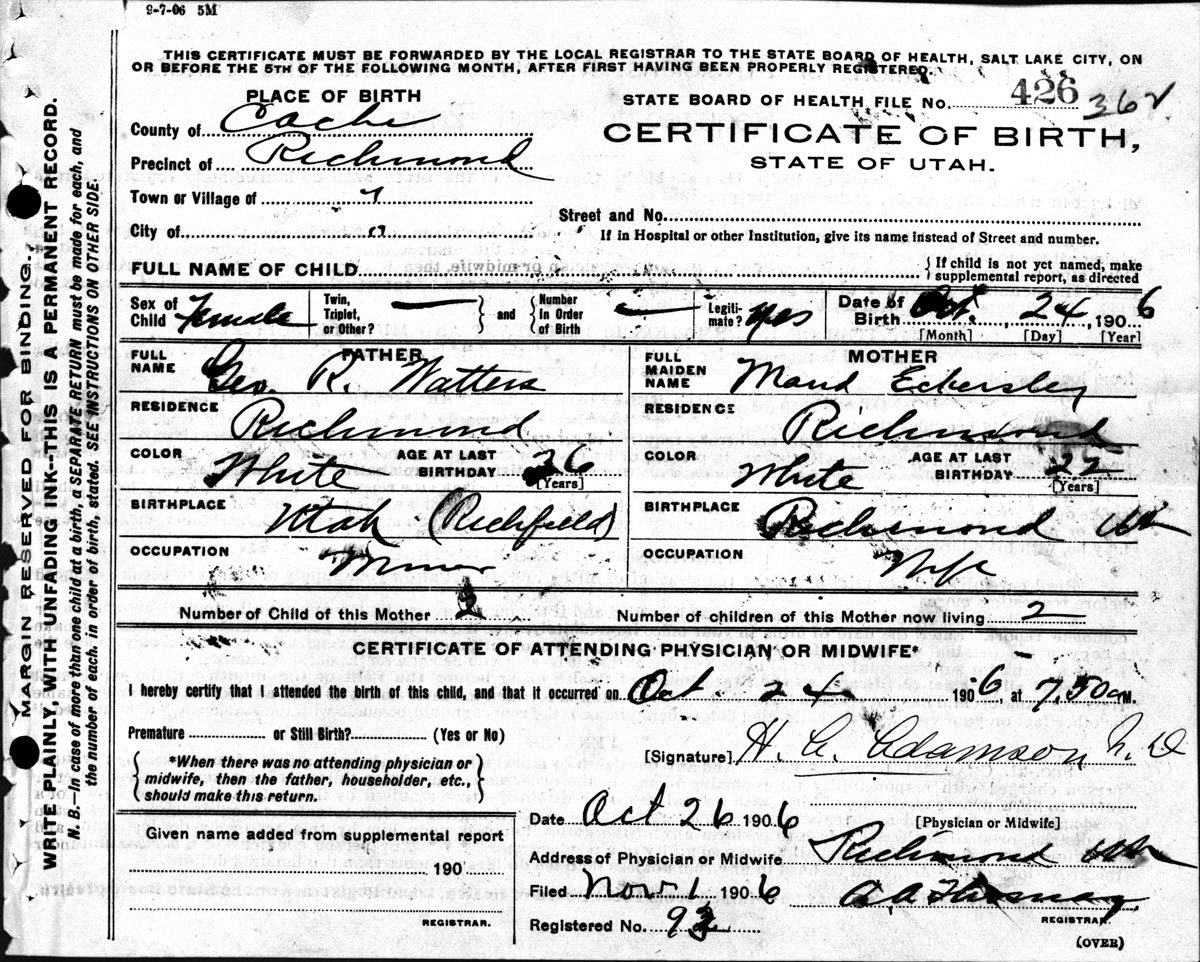 9-7-06 5M
THIS CERTIFICATE MUST BE FORWARDED BY THE LOCAL REGISTRAR TO THE STATE BOARD OF HEALTH, SALT LAKE CITY, ON
OR BEFORE THE 5TH OF THE FOLLOWING MONTH, AFTER FIRST HAVING BEEN PROPERLY REGISTERED.
PLACE OF BIRTH
STATE BOARD OF HEALTH FILE No. 426 362
County of Cache
CERTIFICATE OF BIRTH,
Precinct of Richmond
STATE OF UTAH.
Town or Village of
Street and No.
City of
If in Hospital or other Institution, give its name instead of Street and number.
FULL NAME OF CHILD
{ If child is not yet named, make
supplemental report, as directed
Sex of Child Female Twin, Triplet, or Other? — } and { Number In Order of Birth — Legiti-mate? yes Date of Birth Oct. 24, 1906
[Month] [Day] [Year]
FATHER
FULL NAME Geo. R. Watters
MOTHER
FULL MAIDEN NAME Maud Eckersley
RESIDENCE Richmond
RESIDENCE Richmond
COLOR White AGE AT LAST BIRTHDAY 26 [Years]
COLOR White AGE AT LAST BIRTHDAY 22 [Years]
BIRTHPLACE Utah (Richfield)
BIRTHPLACE Richmond Ut
OCCUPATION Miner
OCCUPATION Wife
Number of Child of this Mother 2 Number of children of this Mother now living 2
CERTIFICATE OF ATTENDING PHYSICIAN OR MIDWIFE*
I hereby certify that I attended the birth of this child, and that it occurred on Oct. 24 1906 at 7.50 a M.
Premature or Still Birth? (Yes or No)
[Signature] H. C. Adamson M.D
{ *When there was no attending physician or
midwife, then the father, householder, etc.,
should make this return. }
Date Oct 26 1906
[Physician or Midwife]
Given name added from supplemental report
190
Address of Physician or Midwife Richmond Ut
Filed Nov. 1, 1906
REGISTRAR.
REGISTRAR.
Registered No. 93
(OVER)
MARGIN RESERVED FOR BINDING.
WRITE PLAINLY, WITH UNFADING INK—THIS IS A PERMANENT RECORD.
N. B.—In case of more than one child at a birth, a SEPARATE RETURN must be made for each, and
the number of each, in order of birth, stated. SEE INSTRUCTIONS ON OTHER SIDE.